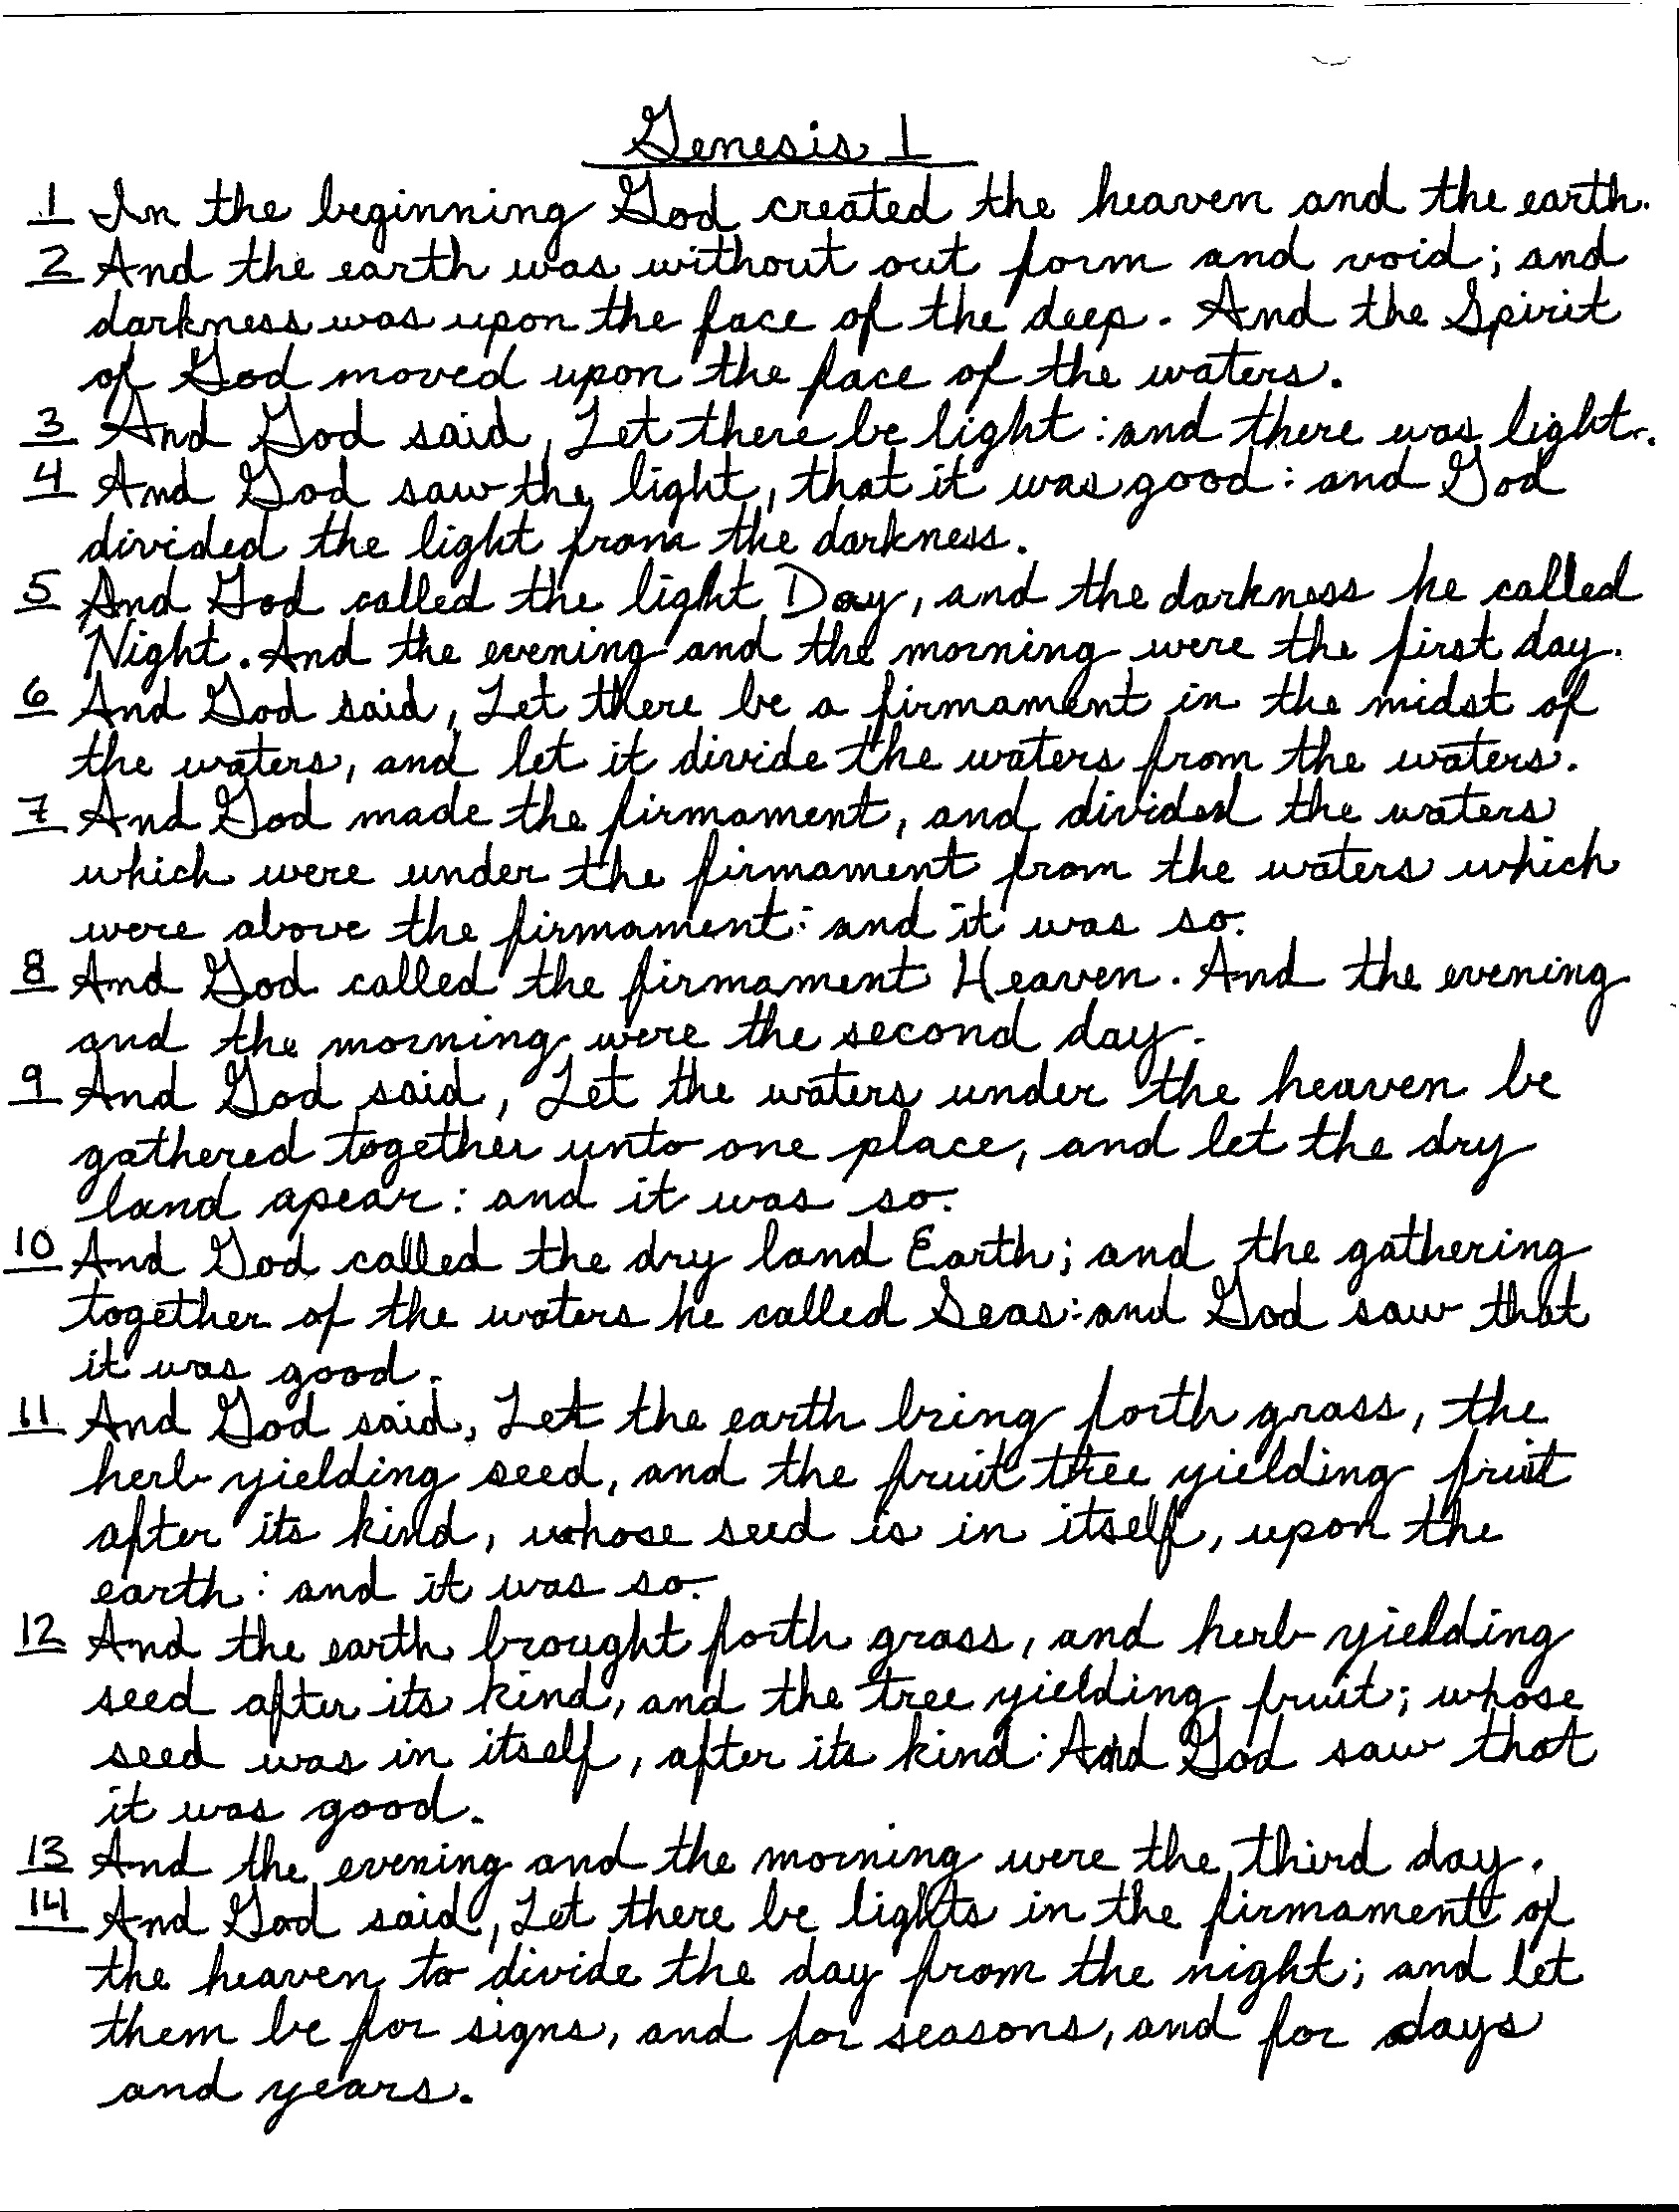 Genesis 1
1 In the beginning God created the heaven and the earth.
2 And the earth was without out form and void; and
darkness was upon the face of the deep. And the Spirit
of God moved upon the face of the waters.
3 And God said, Let there be light: and there was light.
4 And God saw the light, that it was good: and God
divided the light from the darkness.
5 And God called the light Day, and the darkness he called
Night. And the evening and the morning were the first day.
6 And God said, Let there be a firmament in the midst of
the waters, and let it divide the waters from the waters.
7 And God made the firmament, and divided the waters
which were under the firmament from the waters which
were above the firmament: and it was so.
8 And God called the firmament Heaven. And the evening
and the morning were the second day.
9 And God said, Let the waters under the heaven be
gathered together unto one place, and let the dry
land apear: and it was so.
10 And God called the dry land Earth; and the gathering
together of the waters he called Seas: and God saw that
it was good.
11 And God said, Let the earth bring forth grass, the
herb yielding seed, and the fruit tree yielding fruit
after its kind, whose seed is in itself, upon the
earth: and it was so.
12 And the earth brought forth grass, and herb yielding
seed after its kind, and the tree yielding fruit; whose
seed was in itself, after its kind: And God saw that
it was good.
13 And the evening and the morning were the third day.
14 And God said, Let there be lights in the firmament of
the heaven to divide the day from the night; and let
them be for signs, and for seasons, and for days
and years.